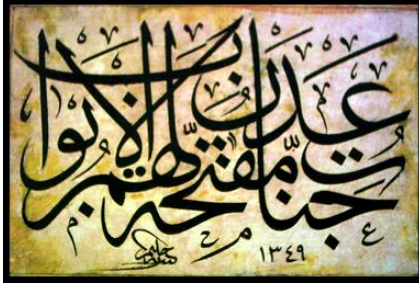 جَنَّاتِ عَدْنٍ مُفَتَّحَةً لَهُمُ الْأَبْوَابُ
١٣٤٩